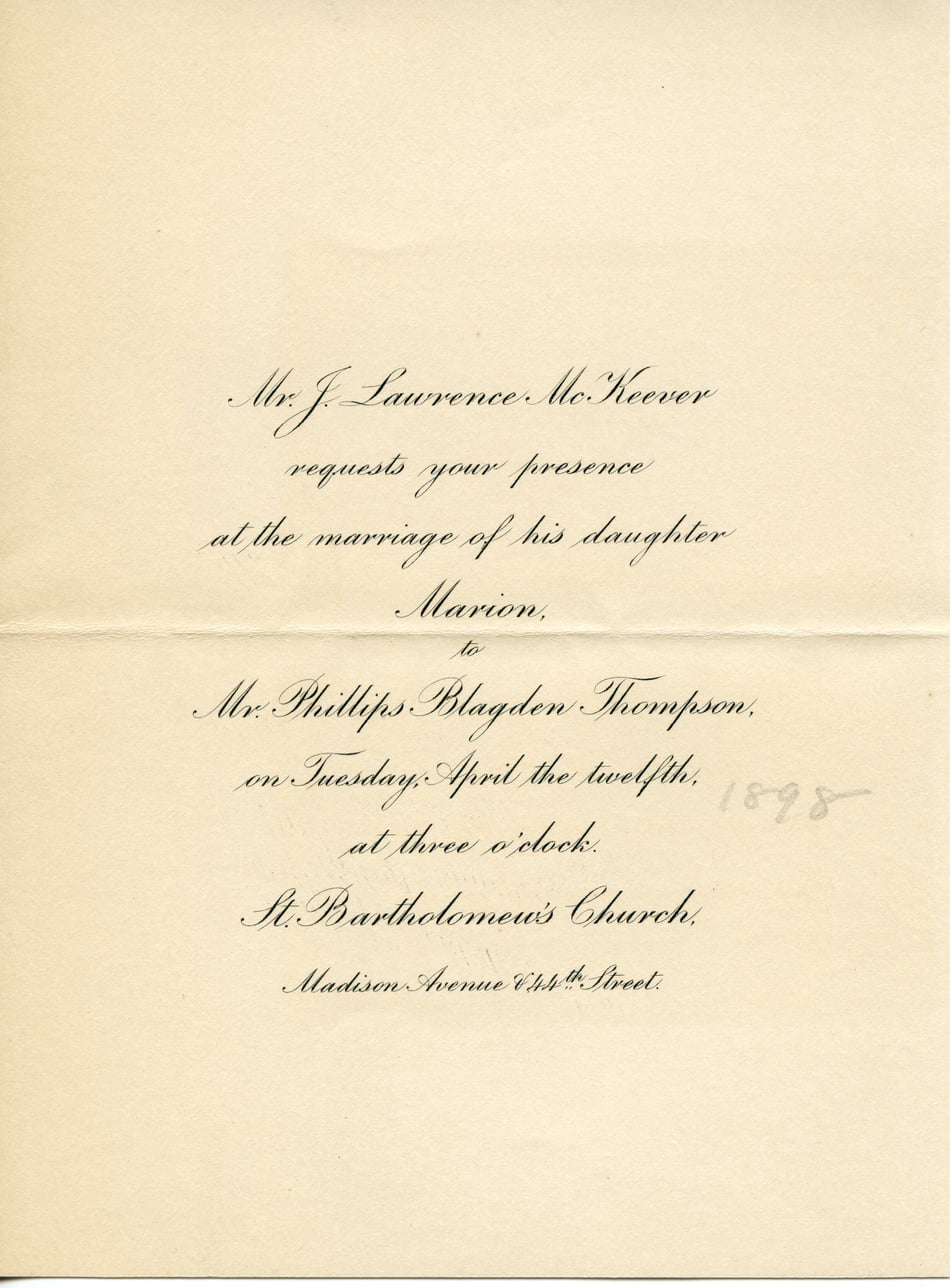 Mr. J. Lawrence McKeever
requests your presence
at the marriage of his daughter
Marion,
to
Mr. Phillips Blagden Thompson,
on Tuesday, April the twelfth, 1898
at three o'clock.
St. Bartholomew's Church,
Madison Avenue & 44th Street.